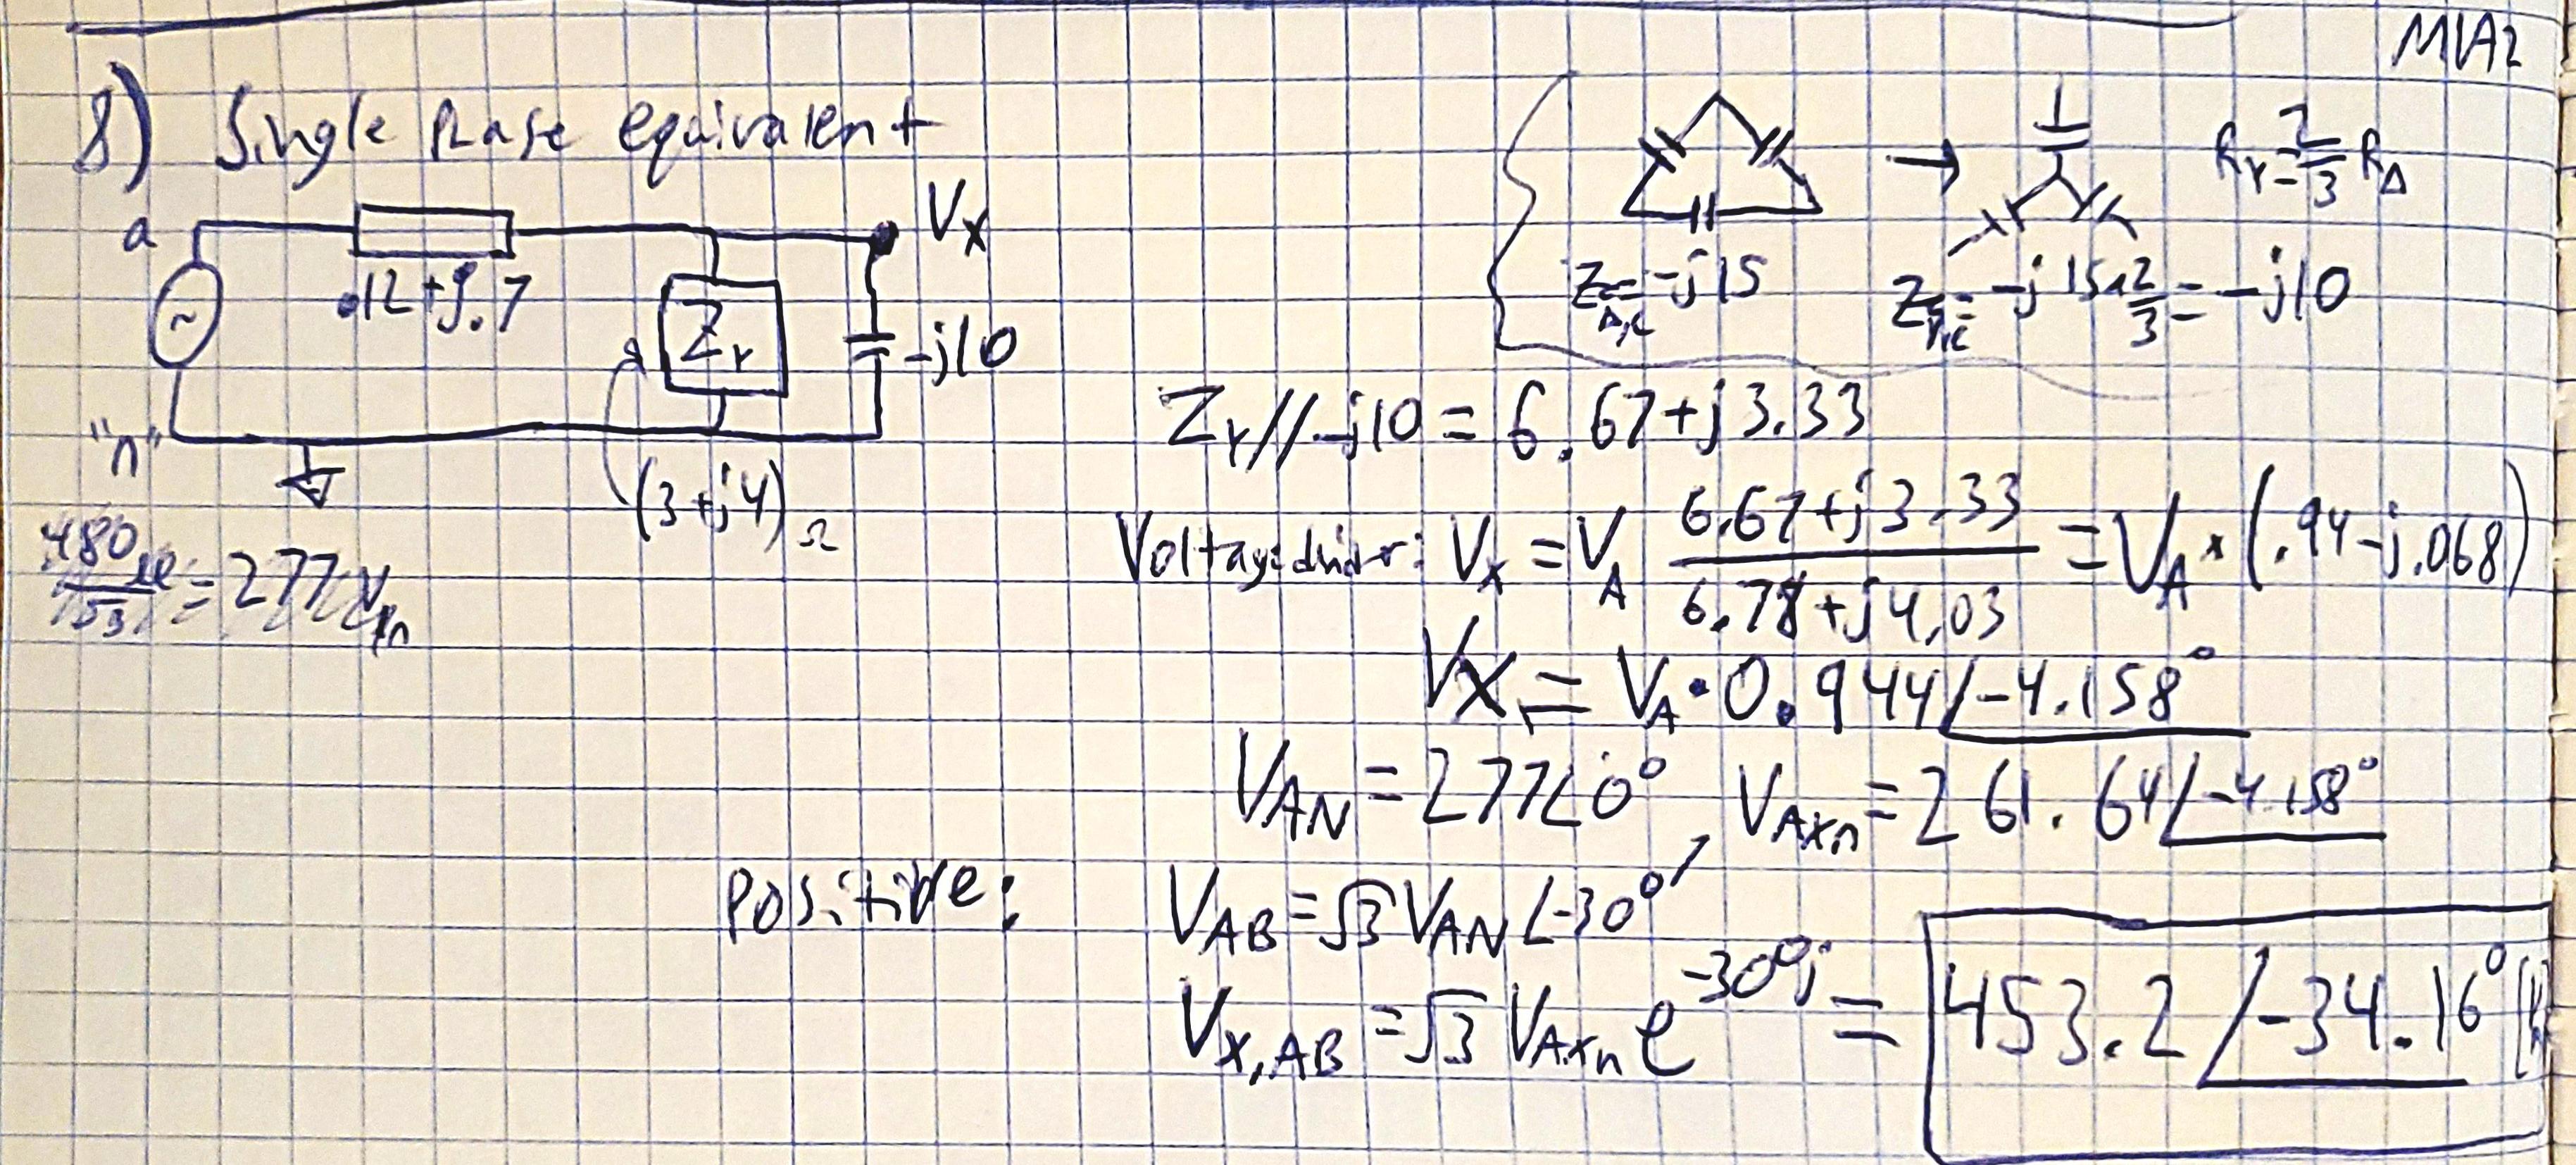 M1A2
8) Single Phase equivalent
a
.12+j.7
Vx
ZY
-j10
"n"
(3+j4)Ω
480/√3 = 277V
R_Y = 2/3 R_Δ
Z_Δ,C = -j15
Z_Y,C = -j15*2/3 = -j10
Z_Y//-j10 = 6.67+j3.33
Voltage divider: V_X = V_A (6.67+j3.33)/(6.78+j4.03) = V_A * (.94-j.068)
VX = V_A • 0.944/-4.158°
V_AN = 277∠0° V_AXn = 261.64/-4.158°
Positive: V_AB = √3 V_AN ∠-30°
V_X,AB = √3 V_AXn e^-30°j = 453.2/-34.16°